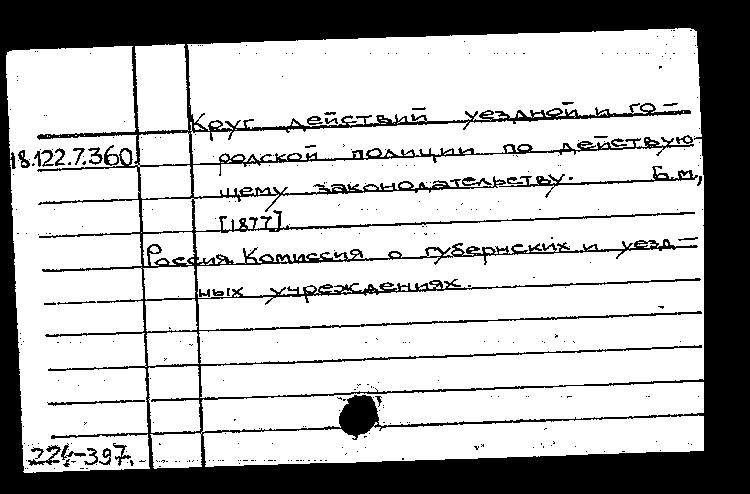 Круг действий уездной и го-
18.122.7.360. родской полиции по действую-
щему законодательству. Б.м.,
[1877].
Россия. Комиссия о губернских и уезд-
ных учреждениях.
224-397.